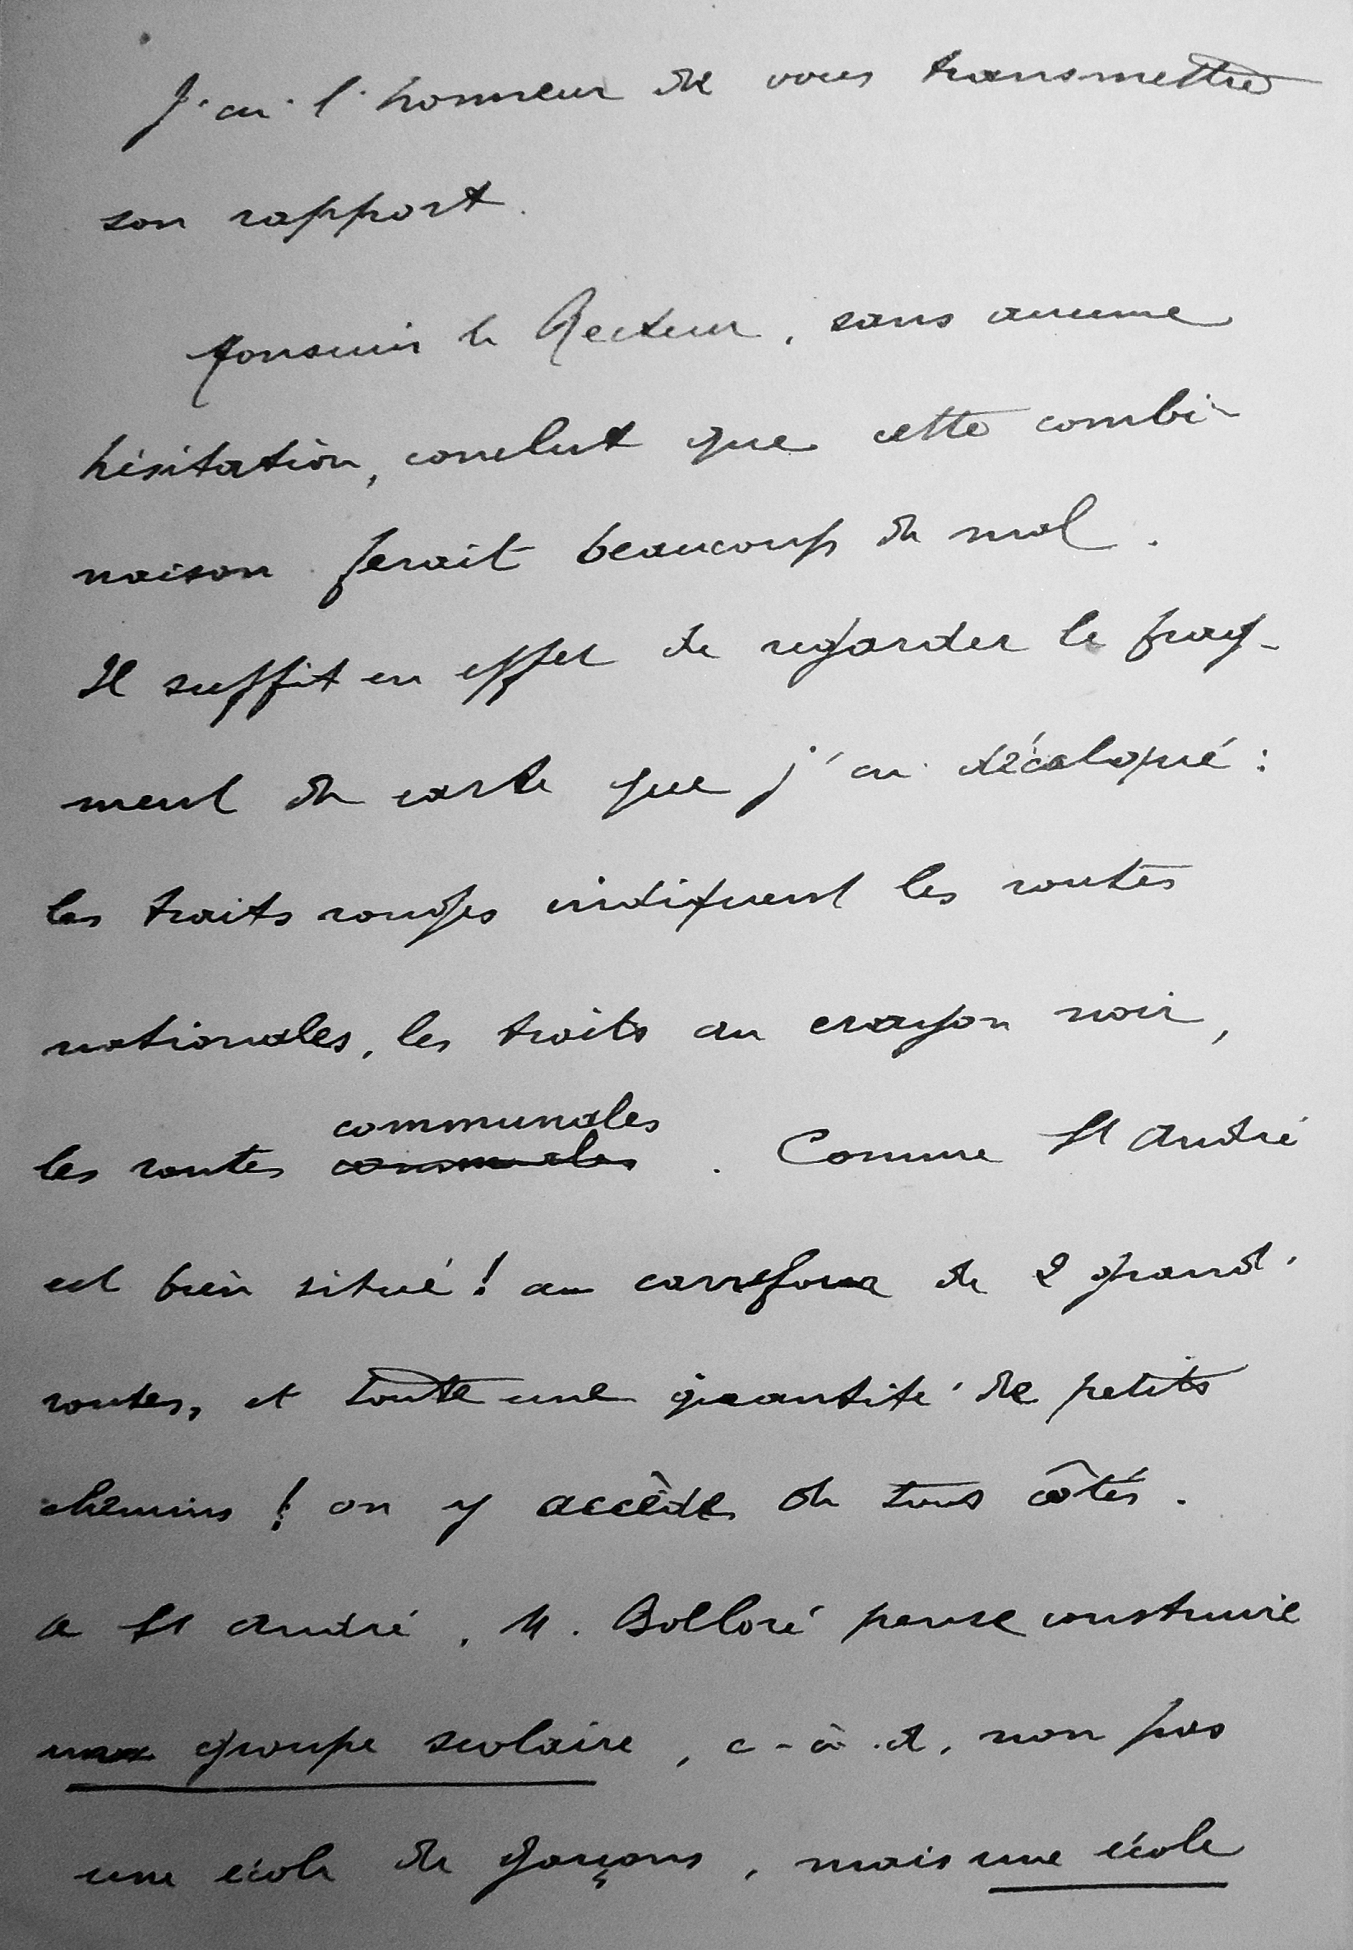 J'ai l'honneur de vous transmettre
son rapport.
Monsieur le Recteur, sans aucune
hésitation, conclut que cette combi-
naison ferait beaucoup de mal.
Il suffit en effet de regarder le frag-
ment de carte que j'ai décalqué :
les traits rouges indiquent les routes
nationales, les traits au crayon noir,
communales
les routes communales. Comme St André
est bien situé ! au carrefour de 2 grand'
routes, et toute une quantité de petits
chemins ! on y accède de tous côtés.
A St André, M. Bolloré pense construire
un groupe scolaire, c-à-d. non pas
une école de garçons, mais une école